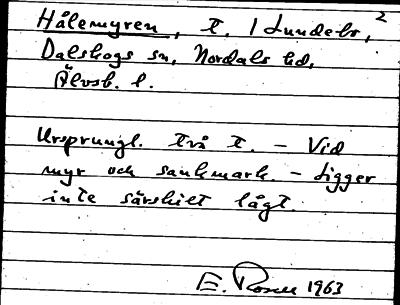 Hålemyren, t. 1 Lundebr, 2
Dalskogs sn, Nordals hd,
Älvsb. l.
Ursprungl. två t. - Vid
myr och sankmark. - Ligger
inte särskilt lågt.
E. Rosell 1963